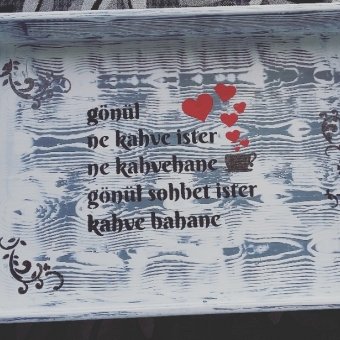 gönül
ne kahve ister
ne kahvehane
gönül sohbet ister
kahve bahane